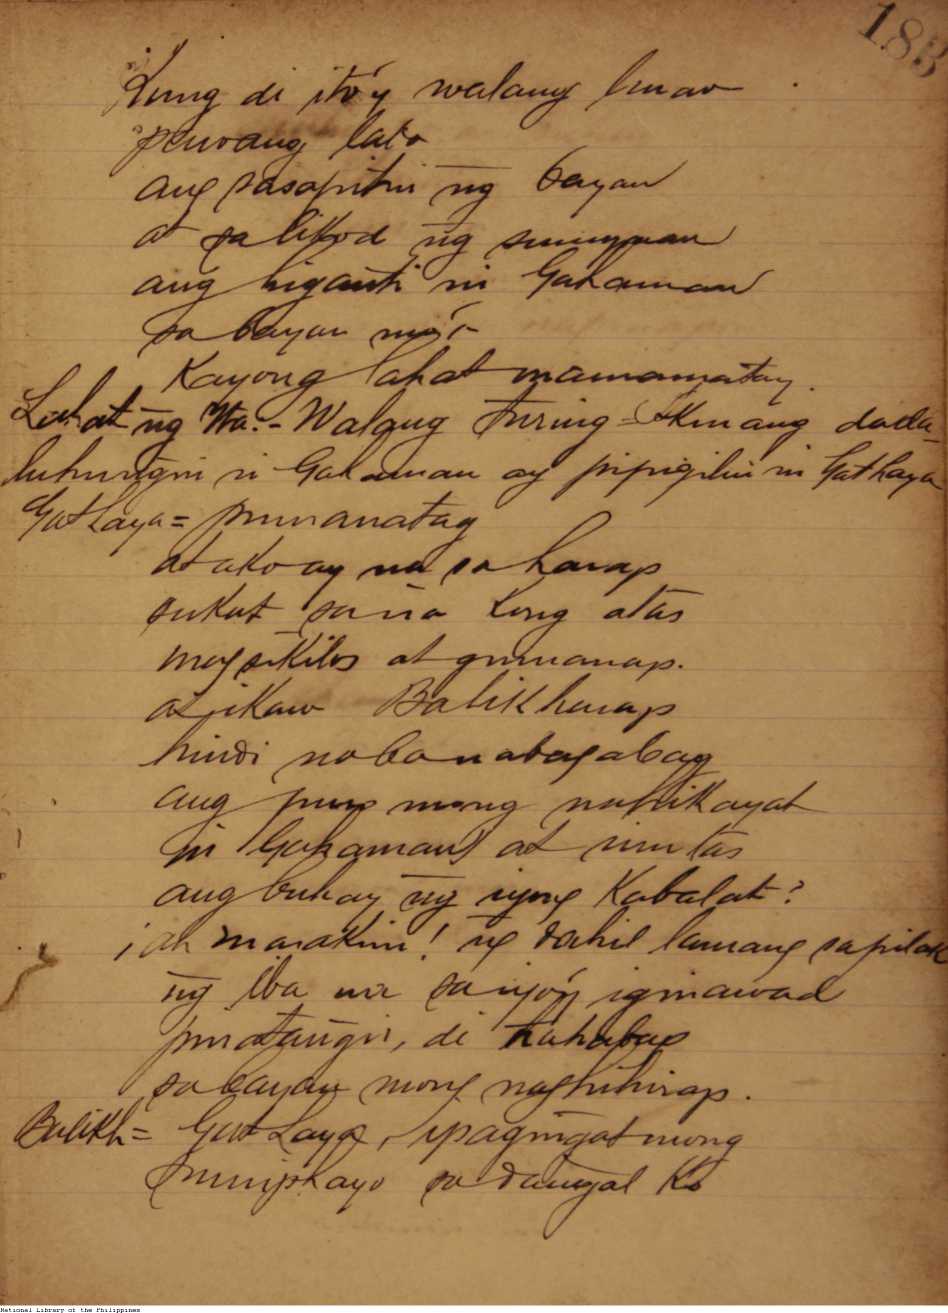 183
Kung di ito'y walang linao
puwang lalo
ang sasapitin ng bayan
at sa likod ng
ang higanti ni Gahaman
sa bayan mó-
Kayong lahat mamamatay.
Lahat ng Wa.- Walang Turing = Akin ang dada-
luhungin si Gahaman ay pipigilin ni Gat haya
Gat Laya = pumanatag
at ako ay na sa harap
sukat sa na kong atas
magsikilos at gumanap.
at ikaw Balikharap
hindi na ba nabagabag
ang puso mong nahikayat
ni Gahaman at inutas
ang buhay ng iyong Kabalat?
¡ah marakim! ng dahil lamang sa pilak
ng iba na sa iyo'y iginawad
pinatangis, di nahabag
sa bayan mong naghihirap.
Balikh = Gat Laya, ipagingat mong
sa dangal Ko
National Library of the Philippines